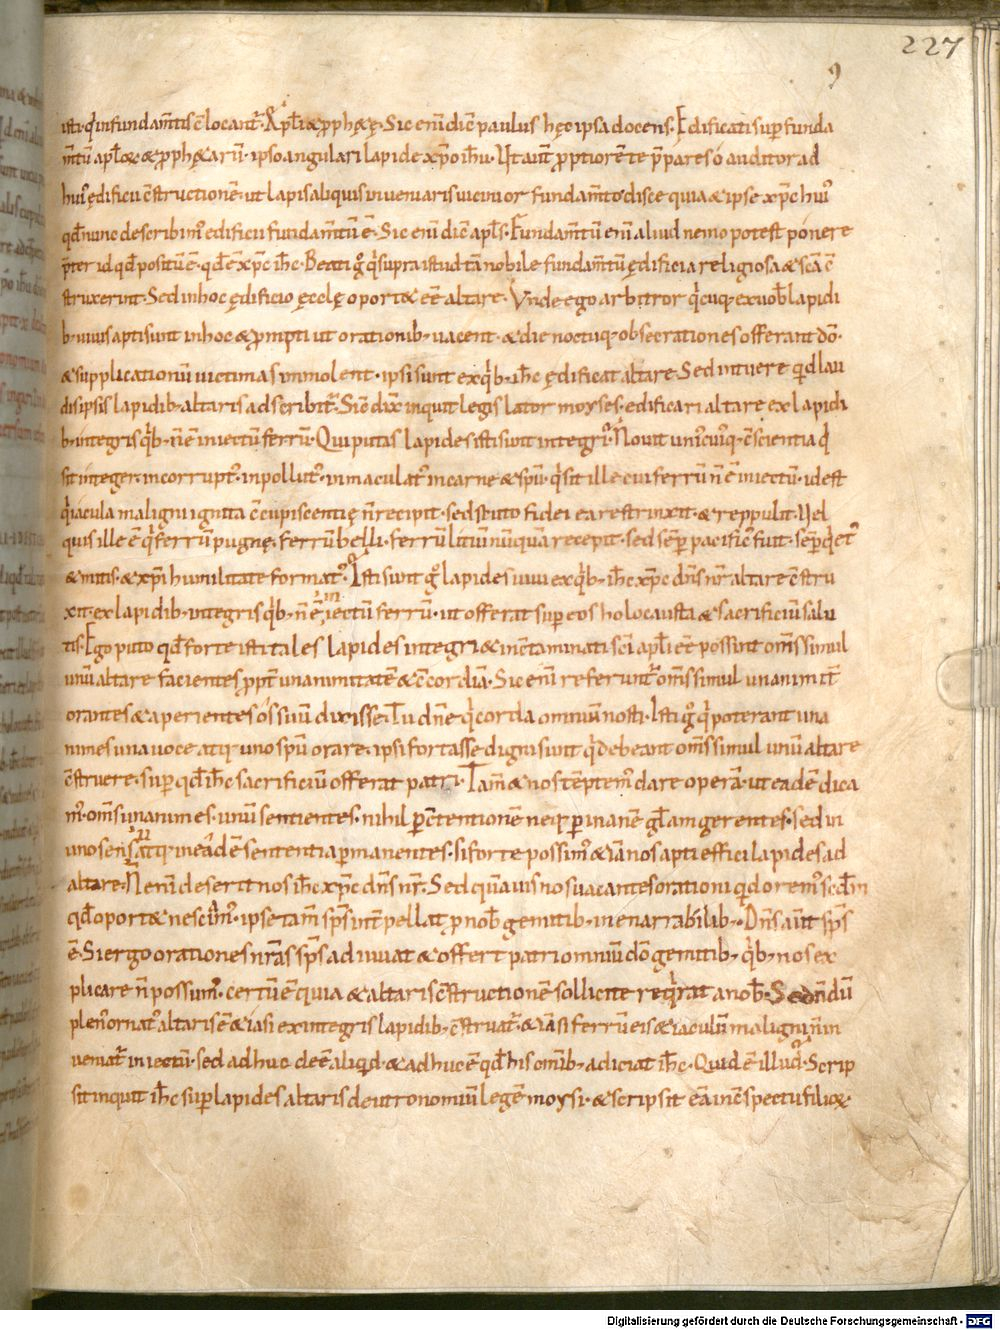 227
9
isti· q̇ in fundam̄tis c̄locant᷑· Apl̄i & pphetę· Sic enī dic̄ paulus hęc ipsa docens· Edificati sup̄ funda
m̄tū apl̄o& & pphetarū· ipso angulari lapide xp̄o ihū· Ut aut̄ pptiore n̄te p̄pares o auditor ad
hui᷒ ędificii c̄structionē· ut lapis aliquis inveniaris vicinior fundam̄to disce quia & ipse xp̄c hui᷒
qd̄ nunc describim᷒ edificii fundam̄tū ē· Sic enī dic̄ apl̄s· Fundam̄tū enī aliud nemo potest ponere
p̄ter id qd̄ positū ē· qd̄ ē xp̄c ih̄c· Beati g̊ q̇ supra istud tā nobile fundam̄tū ędificia religiosa & sc̄a c̄
struxerint· Sed in hoc ędificio ęcclę oport& eē altare· Unde ego arbitror q̇cūq; ex uob̄ lapidi
b; uiuis apti sunt in hoc & prompti ut orationib; uacent· & die noctuq; obsecrationes offerant dō·
& supplicationū uictimas immolent· ipsi sunt ex q̇b; ih̄c ędificat altare· Sed intuere qid lau
dis ipsis lapidib; altaris adscribit᷑· Sic̄ dix̄ inquit legis lator moyses· edificari altare ex lapidi
b; integris q̇b; n̄ ē iniectū ferrū· Qui putas lapides isti sunt integri· Nouit uni᷒cui᷒q; c̄scientia q̇
sit integer· incorrupt᷒· inpollut᷒· inmaculat᷒ in carne & spū· q̇ sit ille cui ferrū n̄ ē iniectū· id est
q̇ iacula maligni ignita c̄cupiscentię n̄ recipit· sed scuto fidei ea restrinxit· & reppulit· Uel
quis ille ē q̇ ferrū pugnę· ferrū belli· ferrū litiū nūquā recepit· sed semp̄ pacific᷒ fuit· semp̄ qet᷒
& mitis· & xp̄i humilitate format᷒· Isti sunt g̊ lapides uiui ex q̇b; ih̄c xp̄c dn̄s nr̄ altare c̄stru
xit· ex lapidib; integris q̇b; n̄ ē iniectū ferrū· ut offerat sup eos holocausta & sacrificiū salu
tis· Ego puto qd̄ forte isti tales lapides integri & inc̄taminati sc̄i apl̄i eē possint om̄s simul
unū altare facientes ppt̄ unanimitatē & c̄cordiā· Sic enī referunt᷑ om̄s simul unanimit̄
orantes & aperientes os suū dixisse· Tu dn̄e q̇ corda omnium nosti· Isti g̊ q̇ poterant una
nimes una uoce atq; uno spū orare· ipsi fortasse digni sunt q̇ debeant om̄s simul unū altare
c̄struere· sup qd̄ ih̄c sacrificiū offerat patri· Tam̄ & nos tēptem᷒ dare operā· ut eadē dica
m᷒· om̄s unanimes· unū sentientes· nihil p c̄tentionē neq; p inanē gl̄am gerentes· sed in
uno sensu atq; in eadē sententia pmanentes· si forte possim᷒ & iā nos apti effici lapides ad
altare· N enī deserit nos ih̄c xp̄c dn̄s nr̄· Sed quāuis nos uacantes orationi qid orem᷒ scd̄m
qd̄ oport& nescim᷒· ipse tam̄ sp̄s int̄pellat p nob̄ gemitib; inenarrabilib;· Dn̄s aut̄ sp̄s
ē· Si ergo orationes nr̄as sp̄s adiuuat & offert patri omniū dō gemitib; q̇b; nos ex
plicare n̄ possum᷒· certū ē quia & altaris c̄structionē sollicite reqirat a nob̄· Sed nōdū
plen᷒ ornat᷒ altaris ē & iā si ex integris lapidib; c̄struat᷑· & iā si ferrū eis & iaculū maligni n̄ in
ueniat᷑ iniectū· sed adhuc deē aliqid· & adhuc ē qd̄ his omīb; adiciat ih̄c· Quid ē illud· Scrip
sit inquit ih̄c sup lapides altaris deutronomiū legē moysi· & scripsit eā in c̄spectu filioꝝ·
Digitalisierung gefördert durch die Deutsche Forschungsgemeinschaft - DFG